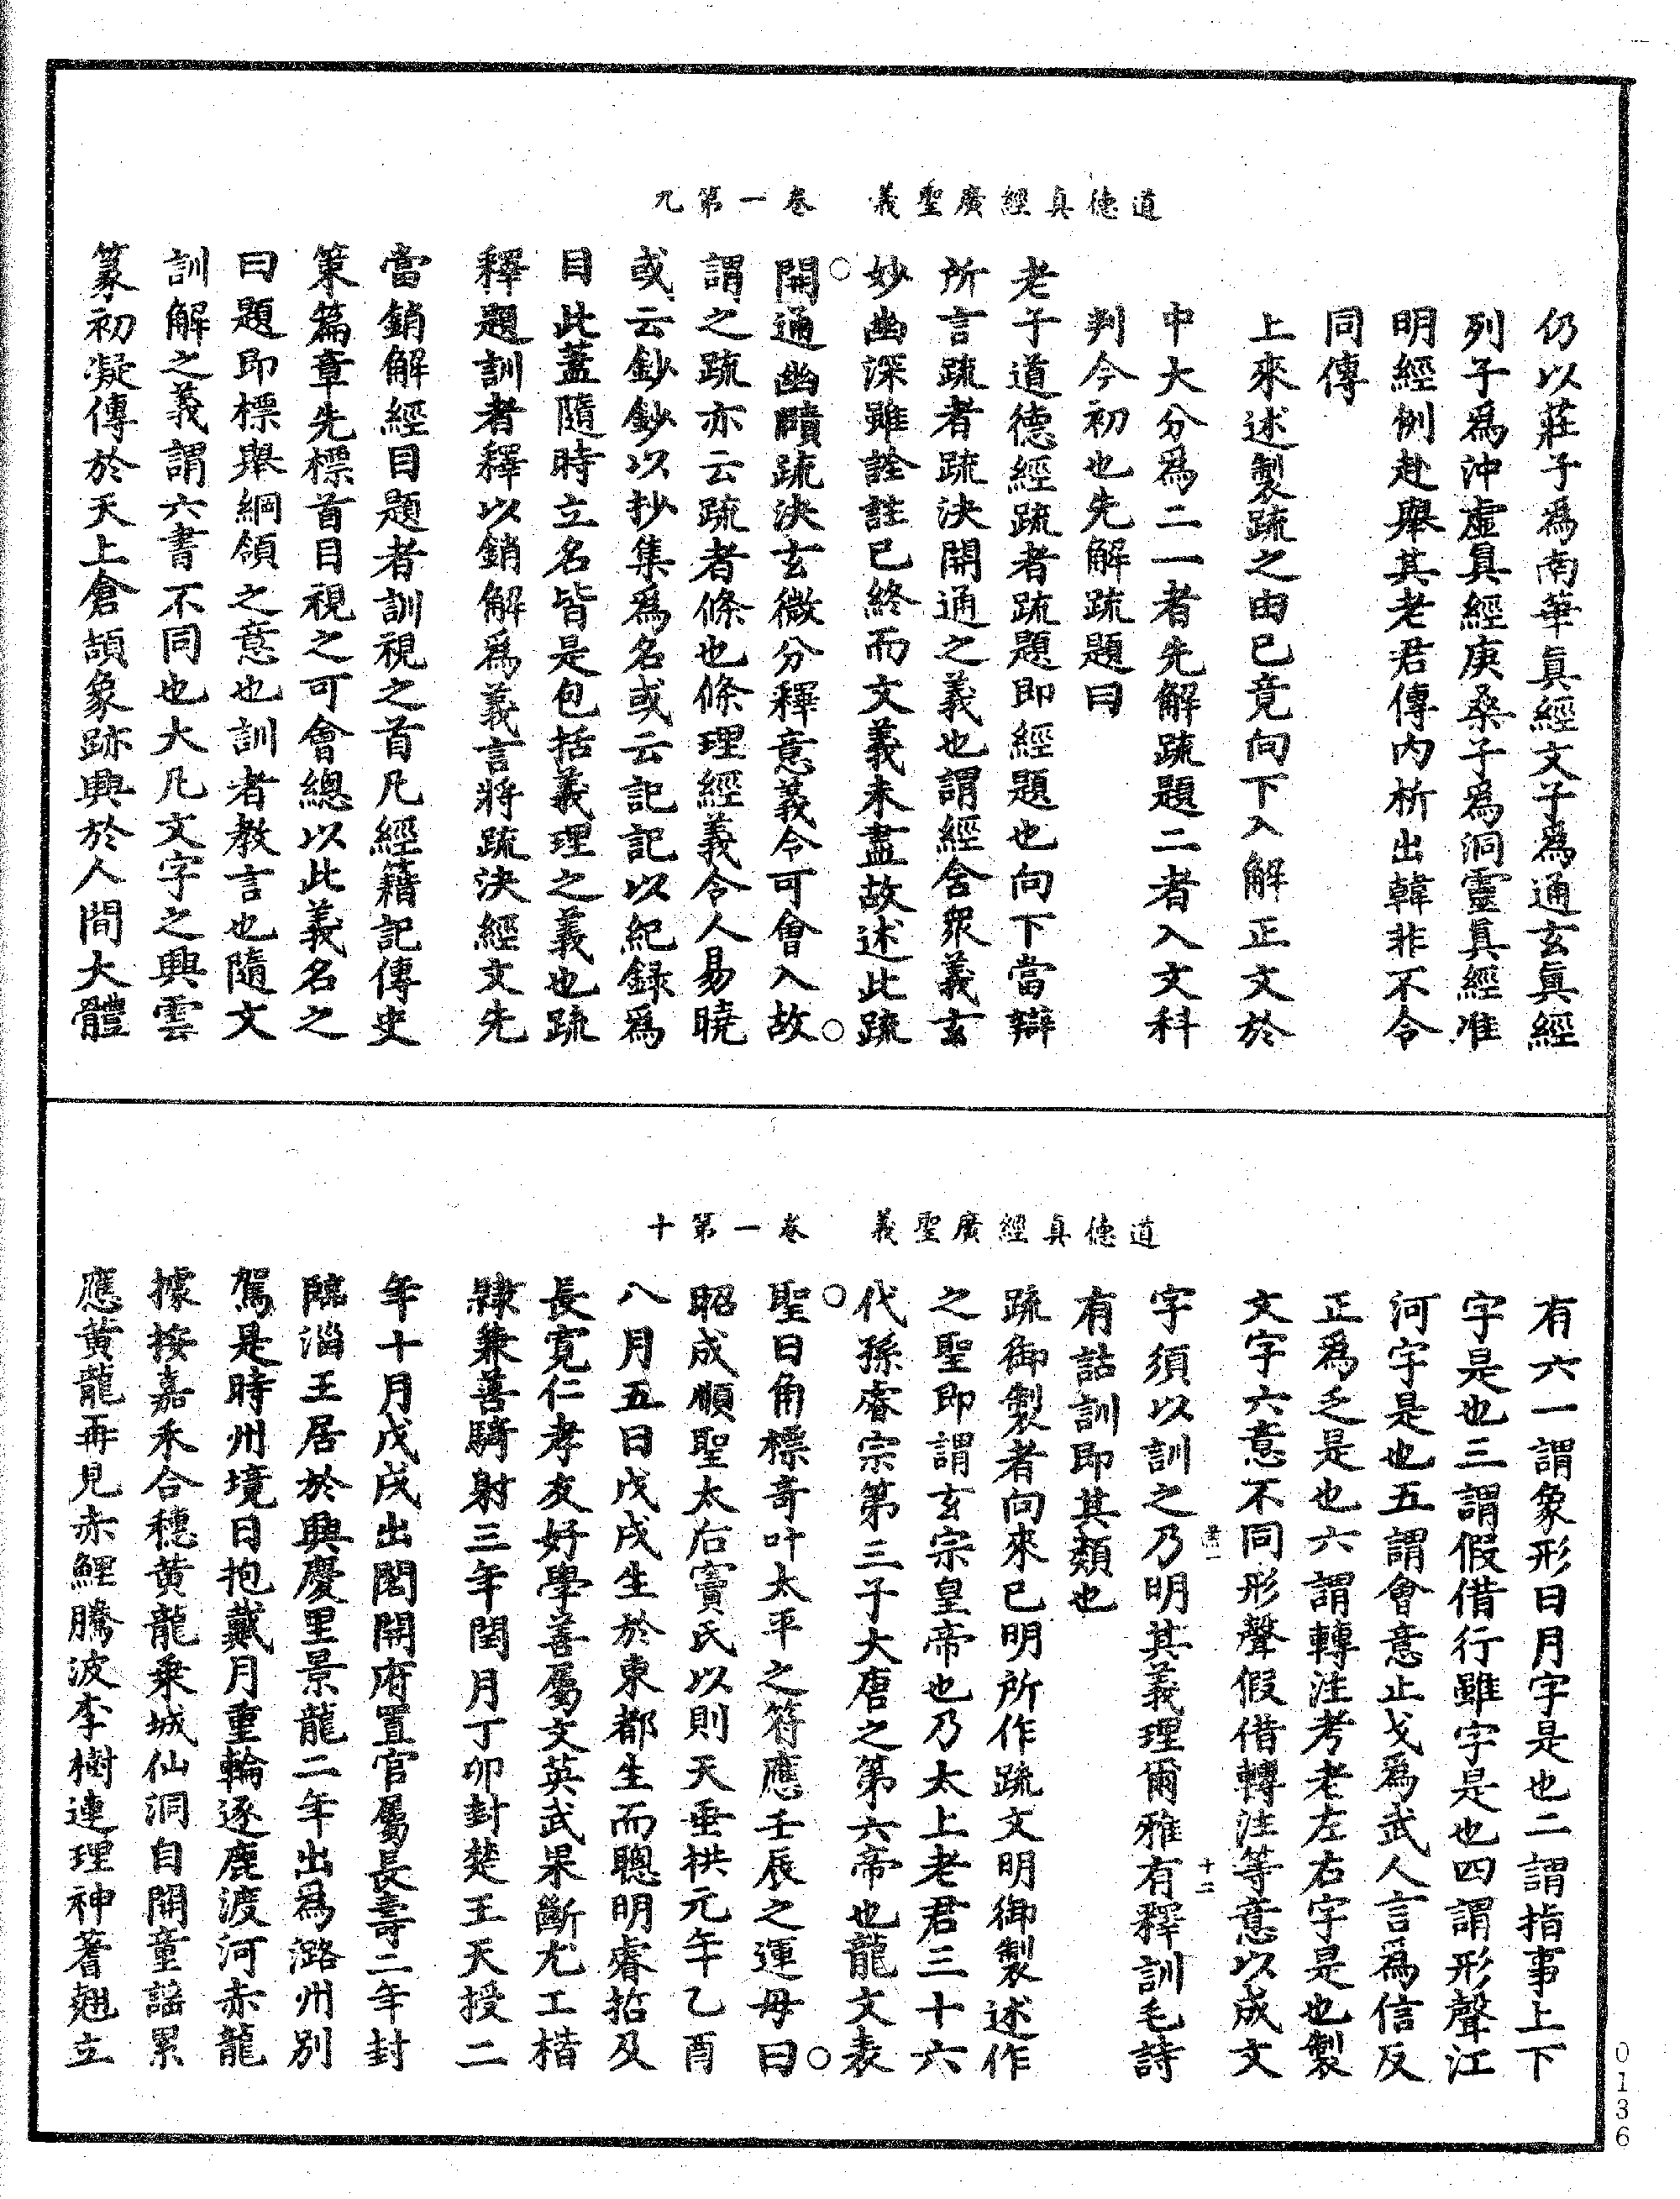 道德真經廣聖義　卷一第九
仍以莊子爲南華真經文子爲通玄真經
列子爲沖虛真經庚桑子爲洞靈真經准
明經例赴舉其老君傳內析出韓非不令
同傳
上來述製疏之由已竟向下入解正文於
中大分爲二一者先解疏題二者入文科
判今初也先解疏題曰
老子道德經疏者疏題即經題也向下當辯
所言疏者疏決開通之義也謂經含衆義玄
妙幽深雖詮註已終而文義未盡故述此疏
開通幽賾疏決玄微分釋意義令可會入故
謂之疏亦云疏者條也條理經義令人易曉
或云鈔鈔以抄集爲名或云記記以紀錄爲
目此蓋隨時立名皆是包括義理之義也疏
釋題訓者釋以銷解爲義言將疏決經文先
當銷解經目題者訓視之首凡經籍記傳史
策篇章先標首目視之可會總以此義名之
曰題即標舉綱領之意也訓者教言也隨文
訓解之義謂六書不同也大凡文字之興雲
篆初凝傳於天上倉頡象跡興於人間大體
道德真經廣聖義　卷一第十
有六一謂象形日月字是也二謂指事上下
字是也三謂假借行雖字是也四謂形聲江
河字是也五謂會意止戈爲武人言爲信反
正爲乏是也六謂轉注考老左右字是也製
文字六意不同形聲假借轉注等意以成文
字須以訓之乃明其義理爾雅有釋訓毛詩
有詁訓即其類也
疏御製者向來已明所作疏文明御製述作
之聖即謂玄宗皇帝也乃太上老君三十六
代孫睿宗第三子大唐之第六帝也龍文表
聖日角標奇叶太平之符應壬辰之運母曰
昭成順聖太后竇氏以則天垂拱元年乙酉
八月五日戊戌生於東都生而聰明睿㧞及
長寬仁孝友好學善屬文英武果斷尤工楷
隸兼善騎射三年閏月丁卯封楚王天授二
年十月戊戌出閤開府置官屬長壽二年封
臨淄王居於興慶里景龍二年出爲潞州別
駕是時州境日抱戴月重輪逐鹿渡河赤龍
據按嘉禾合穗黃龍乘城仙洞自開童謡累
應黃龍再見赤鯉騰波李樹連理神蓍翹立
0136